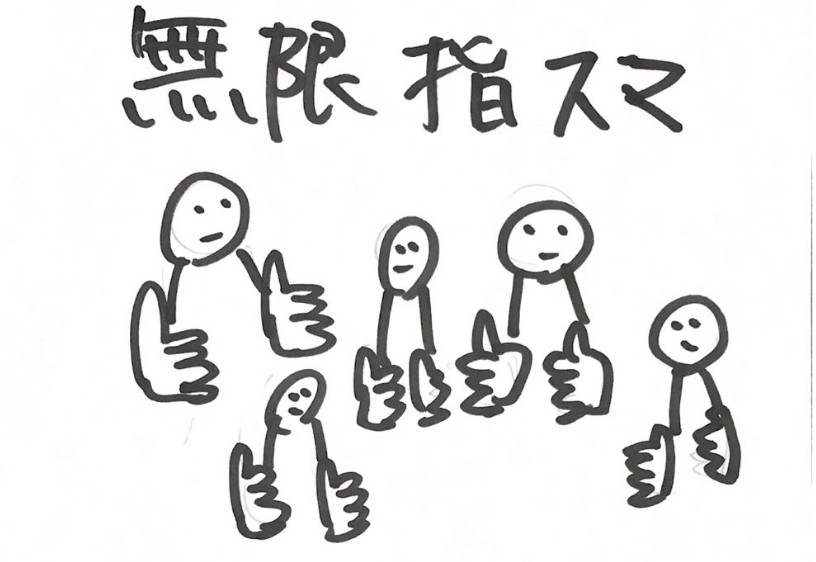 無限指スマ